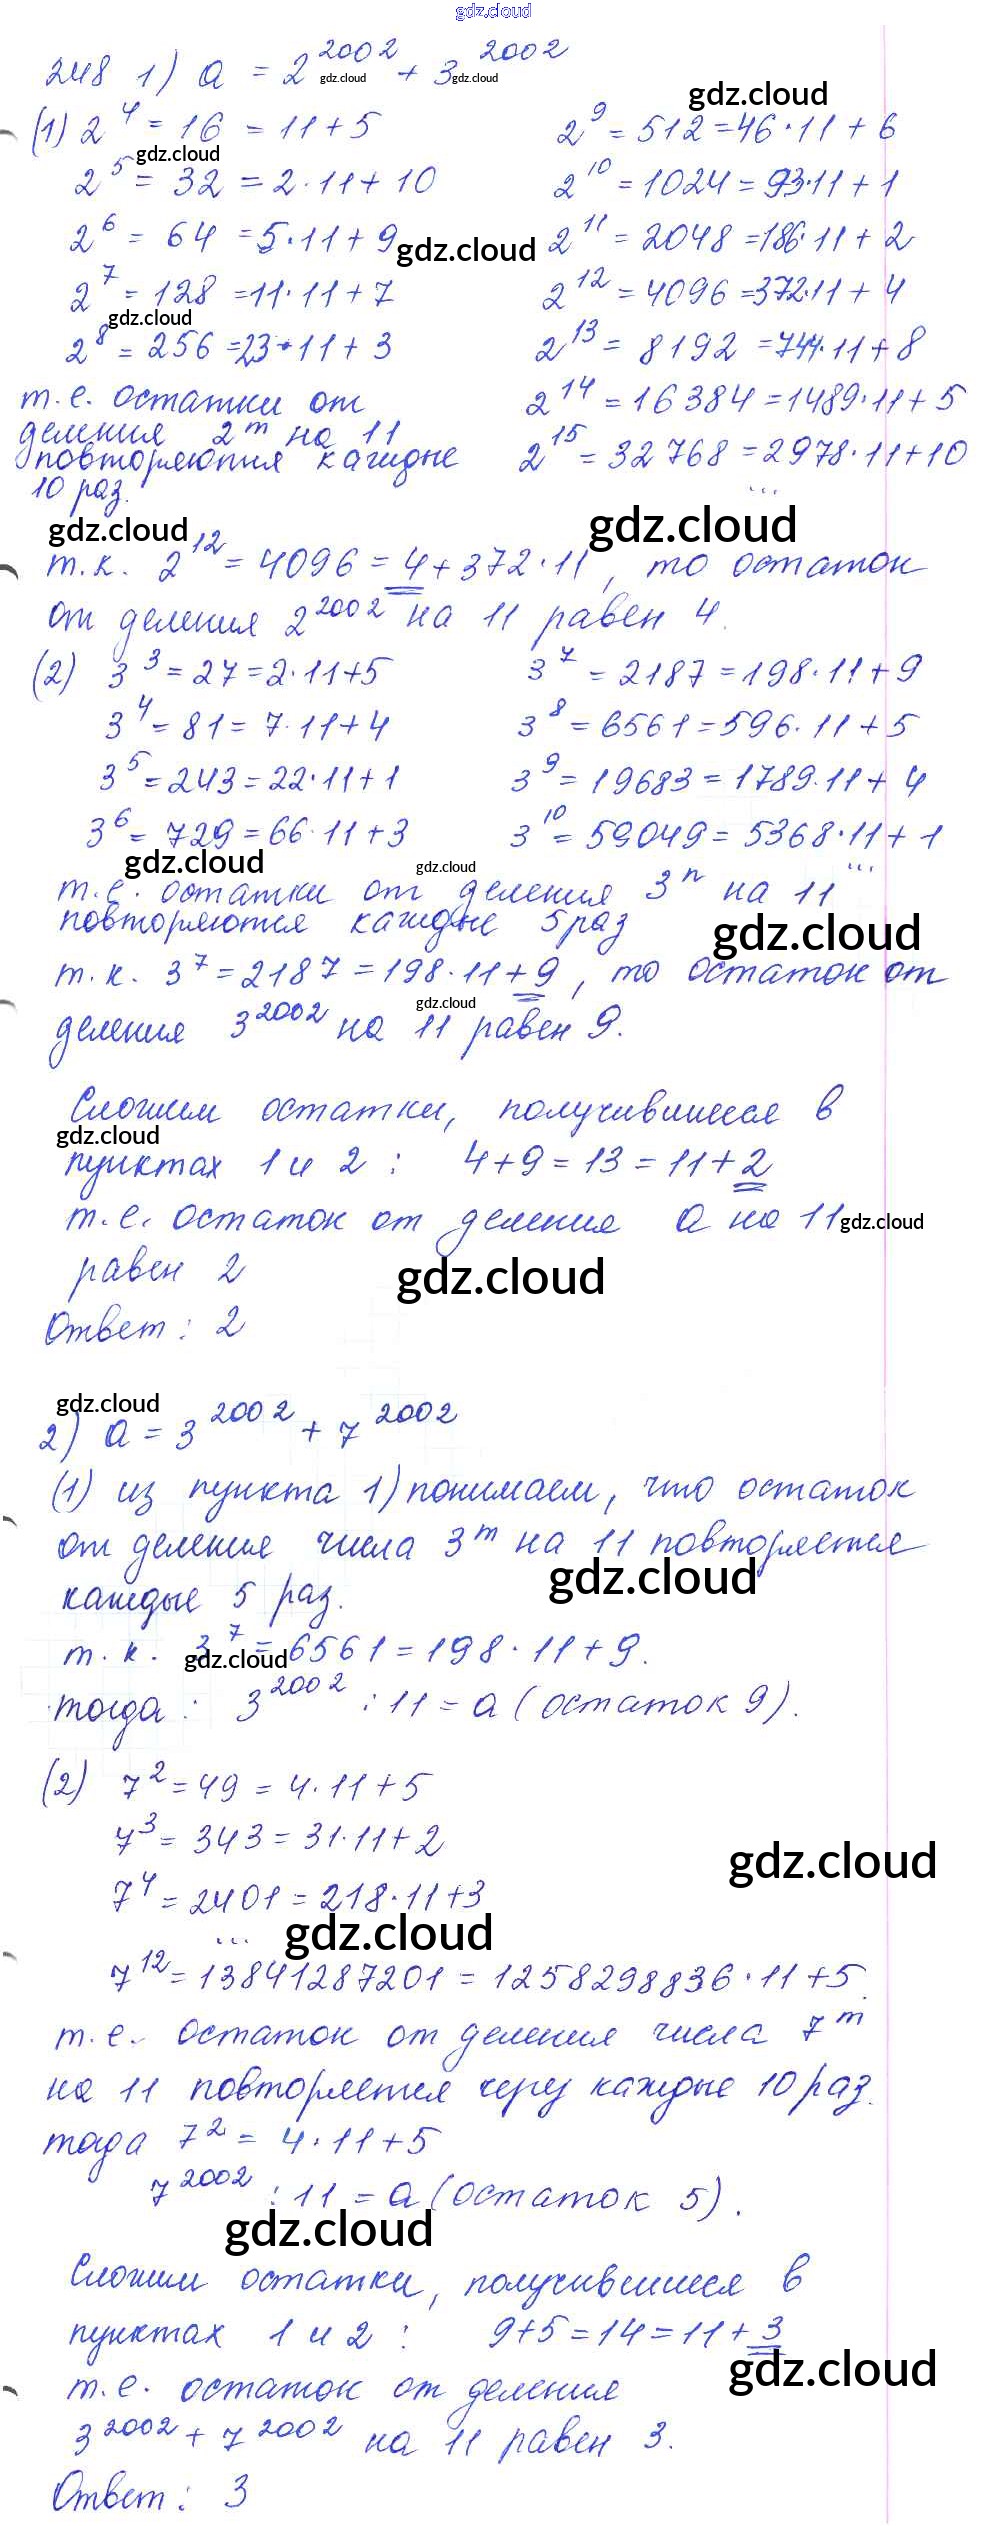 gdz.cloud
248 1) a = 2^2002 + 3^2002
gdz.cloud gdz.cloud
(1) 2^4 = 16 = 11 + 5
gdz.cloud
2^5 = 32 = 2·11 + 10
2^6 = 64 = 5·11 + 9
gdz.cloud
2^7 = 128 = 11·11 + 7
gdz.cloud
2^8 = 256 = 23·11 + 3
т.е. остатки от
деления 2^m на 11
повторяются каждые
10 раз.
gdz.cloud
2^9 = 512 = 46·11 + 6
2^10 = 1024 = 93·11 + 1
2^11 = 2048 = 186·11 + 2
2^12 = 4096 = 372·11 + 4
2^13 = 8192 = 744·11 + 8
2^14 = 16384 = 1489·11 + 5
2^15 = 32768 = 2978·11 + 10
...
gdz.cloud
gdz.cloud
т.к. 2^12 = 4096 = 4 + 372·11, то остаток
от деления 2^2002 на 11 равен 4.
(2) 3^3 = 27 = 2·11 + 5
3^4 = 81 = 7·11 + 4
3^5 = 243 = 22·11 + 1
3^6 = 729 = 66·11 + 3
gdz.cloud
3^7 = 2187 = 198·11 + 9
3^8 = 6561 = 596·11 + 5
3^9 = 19683 = 1789·11 + 4
3^10 = 59049 = 5368·11 + 1
...
gdz.cloud
т.е. остатки от деления 3^n на 11
повторяются каждые 5 раз
gdz.cloud
т.к. 3^7 = 2187 = 198·11 + 9, то остаток от
gdz.cloud
деления 3^2002 на 11 равен 9.
Сложим остатки, получившиеся в
gdz.cloud
пунктах 1 и 2: 4 + 9 = 13 = 11 + 2
т.е. остаток от деления a на 11
gdz.cloud
равен 2
gdz.cloud
Ответ: 2
gdz.cloud
2) a = 3^2002 + 7^2002
(1) из пункта 1) понимаем, что остаток
от деления числа 3^m на 11 повторяется
gdz.cloud
каждые 5 раз.
т.к. 3^7 = 6561 = 198·11 + 9.
gdz.cloud
тогда: 3^2002 : 11 = a (остаток 9).
(2) 7^2 = 49 = 4·11 + 5
7^3 = 343 = 31·11 + 2
gdz.cloud
7^4 = 2401 = 218·11 + 3
...
gdz.cloud
7^12 = 13841287201 = 1258298836·11 + 5.
т.е. остаток от деления числа 7^m
на 11 повторяется через каждые 10 раз.
тогда 7^2 = 4·11 + 5
7^2002 : 11 = a (остаток 5).
gdz.cloud
Сложим остатки, получившиеся в
пунктах 1 и 2: 9 + 5 = 14 = 11 + 3
gdz.cloud
т.е. остаток от деления
3^2002 + 7^2002 на 11 равен 3.
Ответ: 3